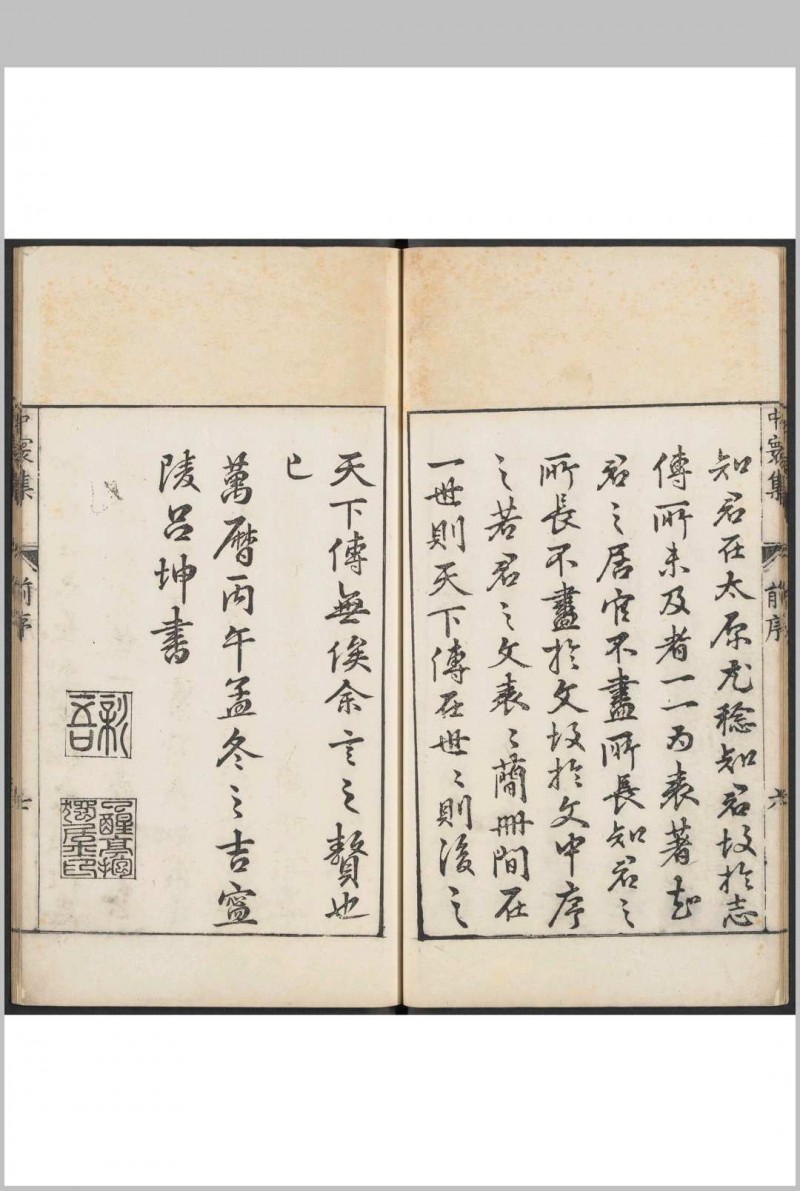 中寰集
前序
六
知君在太原尤稔知君故於志
傳所未及者一一為表著起
君之居官不盡所長知君之
所長不盡於文故於文中序
之若君之文表之簡冊間在
一世則天下傳在世世則後之
天下傳無俟余言之贅也
已
萬曆丙午孟冬之吉寧
陵呂坤書
新吾
中寰集
前序
七